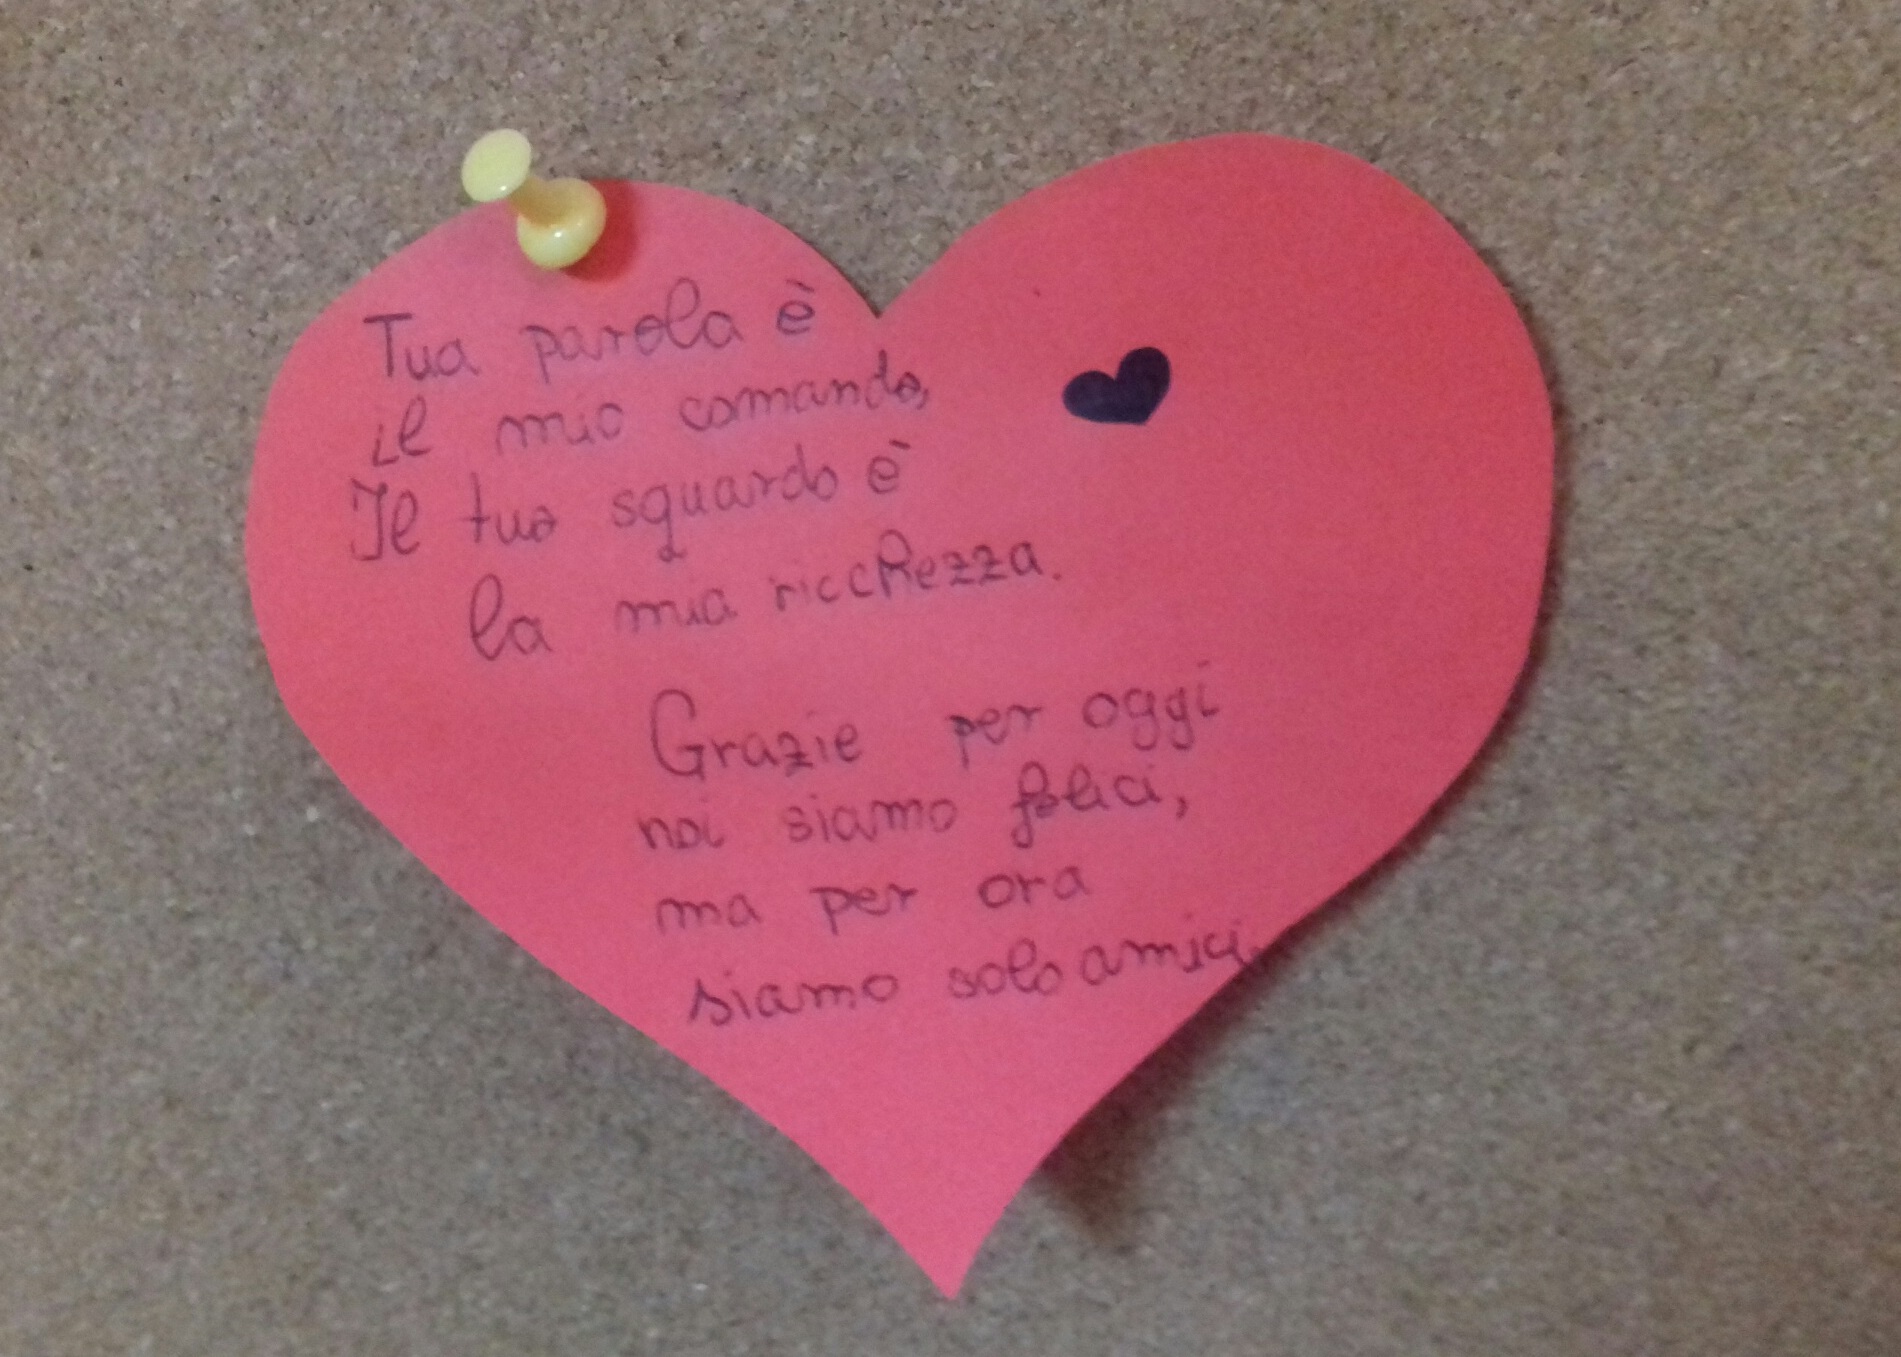 Tua parola è
il mio comando,
Il tuo sguardo è
la mia ricchezza.
Grazie per oggi
noi siamo felici,
ma per ora
siamo solo amici.